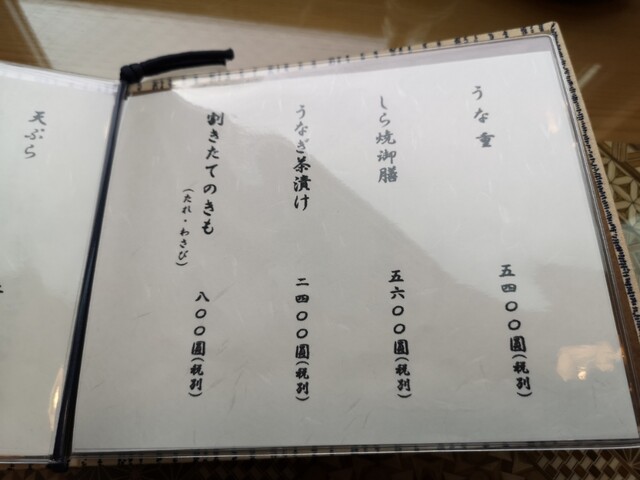 うな重 五四〇〇圓(税別)
しら焼御膳 五六〇〇圓(税別)
うなぎ茶漬け 二四〇〇圓(税別)
割きたてのきも 八〇〇圓(税別)
(たれ・わさび)
天ぷら